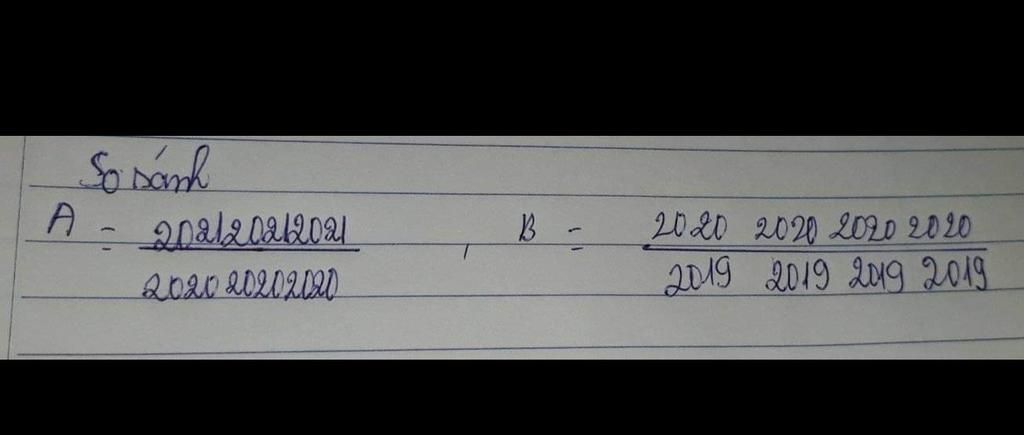 So sánh
A = 202120212021 , B = 2020 2020 2020 2020
2020 2020 2020 2019 2019 2019 2019